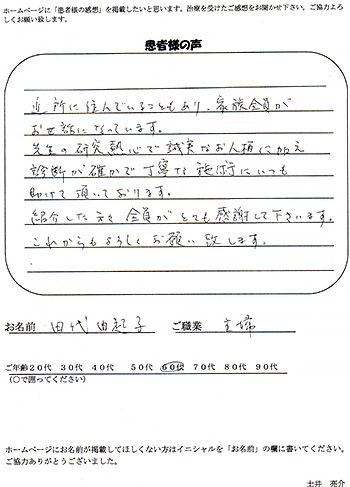 ホームページに「患者様の感想」を掲載したいと思います。治療を受けたご感想をお聞かせ下さい。ご協力よろ
しくお願い致します。
患者様の声
近所に住んでいることもあり、家族全員が
お世話になっています。
先生の研究熱心で誠実なお人柄に加え
診断が確かで丁寧な施術にいつも
助けて頂いております。
紹介した方も全員がとても感謝して下さいます。
これからもよろしくお願い致します。
お名前 田代由起子 ご職業 主婦
ご年齢20代 30代 40代 50代 60代 70代 80代 90代
(〇で囲ってください)
ホームページにお名前が掲載してほしくない方はイニシャルを「お名前」の欄に書いてください。
ご協力ありがとうございました。
土井 亮介